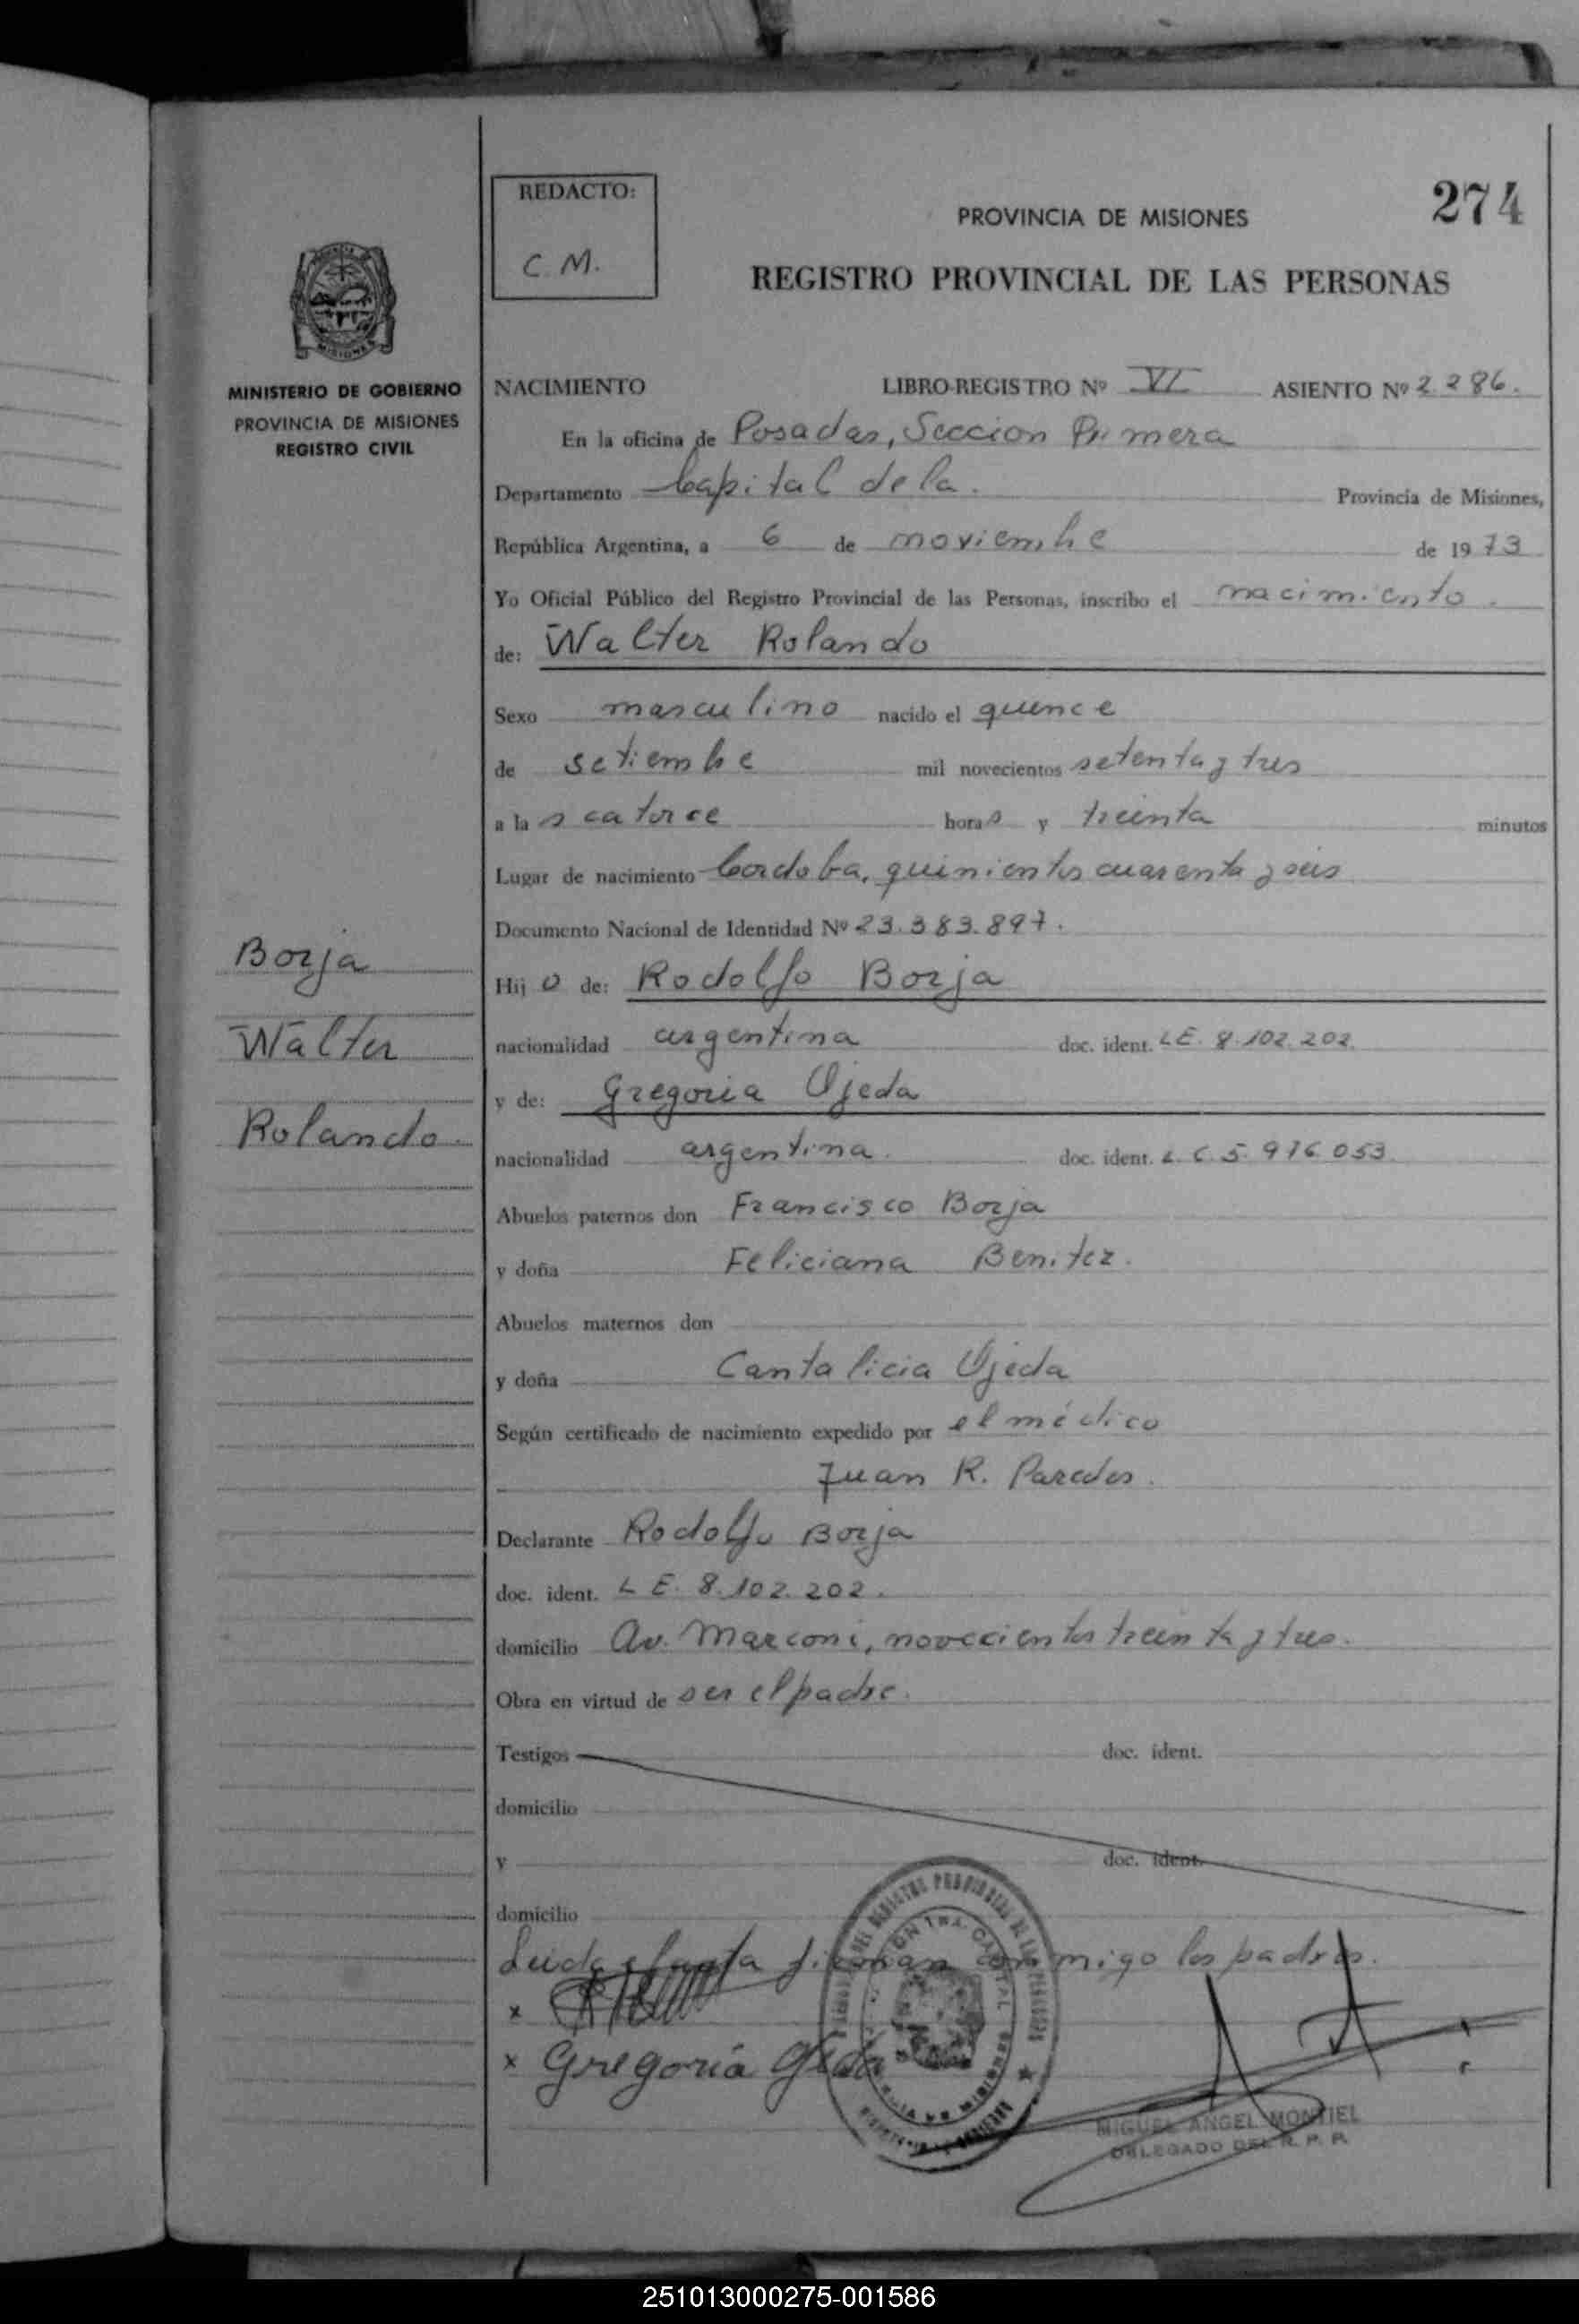 REDACTO:
C. M.
274
PROVINCIA DE MISIONES
REGISTRO PROVINCIAL DE LAS PERSONAS
MISIONES
MINISTERIO DE GOBIERNO
PROVINCIA DE MISIONES
REGISTRO CIVIL
NACIMIENTO LIBRO-REGISTRO Nº VI ASIENTO Nº 2.286.
En la oficina de Posadas, Seccion Primera
Departamento Capital de la. Provincia de Misiones,
República Argentina, a 6 de noviembre de 1973
Yo Oficial Público del Registro Provincial de las Personas, inscribo el nacimiento.
de: Walter Rolando
Sexo masculino nacido el quince
de setiembre mil novecientos setenta y tres
a las catorce horas y treinta minutos
Lugar de nacimiento Cordoba, quinientos cuarenta y seis
Documento Nacional de Identidad Nº 23.383.897.
Borja
Walter
Rolando.
Hijo de: Rodolfo Borja
nacionalidad argentina doc. ident. LE. 8.102.202.
y de: Gregoria Ojeda
nacionalidad argentina. doc. ident. L.C. 5.916.053.
Abuelos paternos don Francisco Borja
y doña Feliciana Benitez.
Abuelos maternos don
y doña Cantalicia Ojeda
Según certificado de nacimiento expedido por el médico
Juan R. Paredes.
Declarante Rodolfo Borja
doc. ident. L E. 8.102.202.
domicilio Av. Marconi, novecientos treinta y tres.
Obra en virtud de ser el padre.
Testigos doc. ident.
domicilio
y doc. ident.
domicilio
Leida el acta firman conmigo los padres.
x
x Gregoria Ojeda
MIGUEL ANGEL MONTIEL
DELEGADO DEL R. P. P.
251013000275-001586